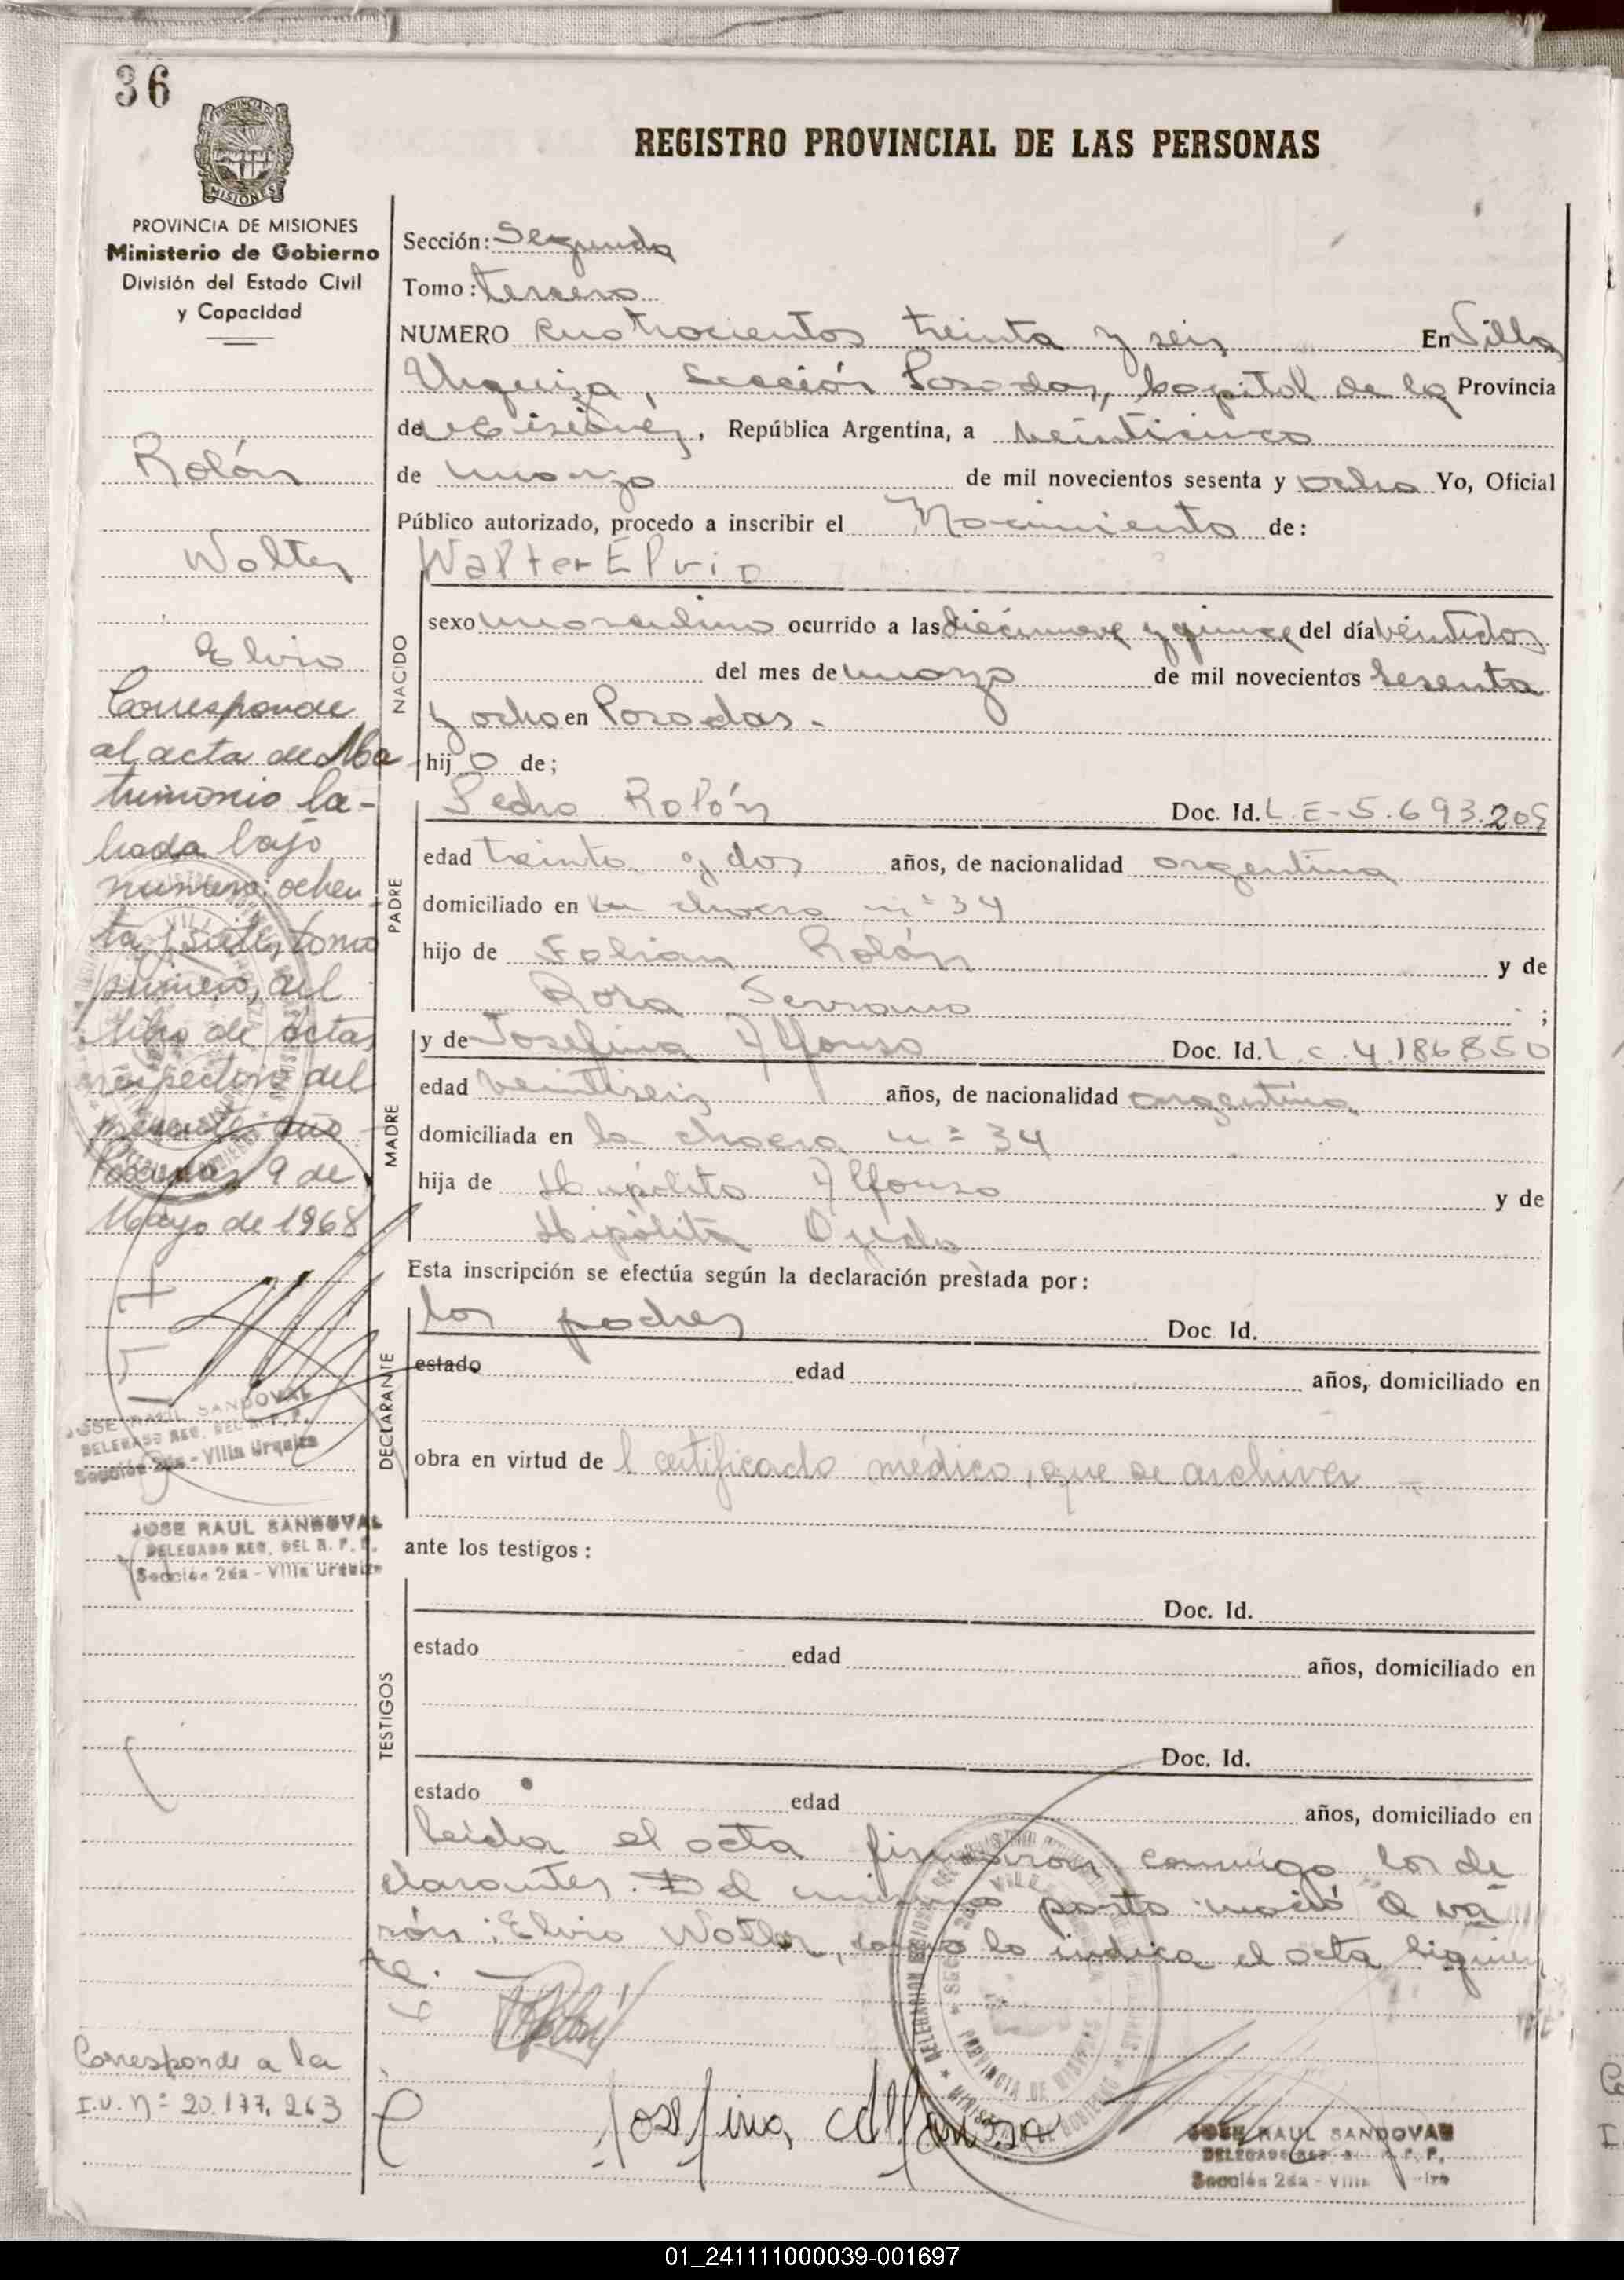 36
REGISTRO PROVINCIAL DE LAS PERSONAS
MISIONES
PROVINCIA DE MISIONES
Ministerio de Gobierno
División del Estado Civil
y Capacidad
Rolón
Walter
Elvio
Corresponde
al acta de Ma
trimonio la-
brada bajo
número: ochen
ta y siete, tomo
primero, del
libro de actas
respectivo del
presente año
Posadas 9 de
Mayo de 1968
JOSE RAUL SANDOVAL
DELEGADO REG. DEL R. P. P.
Sección 2da - Villa Urquiza
JOSE RAUL SANDOVAL
DELEGADO REG. DEL R. P. P.
Sección 2da - Villa Urquiza
Corresponde a la
I.U. nº 20.177.263
Sección: Segunda
Tomo: tercero
NUMERO cuatrocientos treinta y seis En Villa
Urquiza, Sección Posadas, Capital de la Provincia
de Misiones, República Argentina, a veinticinco
de marzo de mil novecientos sesenta y ocho Yo, Oficial
Público autorizado, procedo a inscribir el Nacimiento de:
Walter Elvio
NACIDO
sexo masculino ocurrido a las diecinueve y quince del día veintidos
del mes de marzo de mil novecientos sesenta
y ocho en Posadas.-
hij o de;
PADRE
Pedro Rolón Doc. Id. L.E-5.693.205
edad treinta y dos años, de nacionalidad argentina
domiciliado en la chacra nº 34
hijo de Fabian Rolón y de
Rosa Serrano ;
MADRE
y de Josefina Alfonso Doc. Id. L.C. 4.186850
edad veintiseis años, de nacionalidad argentina
domiciliada en la chacra nº 34
hija de Hipólito Alfonso y de
Hipólita Ojeda
Esta inscripción se efectúa según la declaración prestada por:
DECLARANTE
los padres Doc. Id.
estado edad años, domiciliado en
obra en virtud de l certificado médico, que se archiva
ante los testigos:
TESTIGOS
Doc. Id.
estado edad años, domiciliado en
Doc. Id.
estado edad años, domiciliado en
Leida el acta firmaron conmigo los de
clarantes. Del mismo parto nació el va
rón: Elvio Walter, como lo indica el acta siguien
te.
Josefina Alfonso
JOSE RAUL SANDOVAL
DELEGADO REG. DEL R. P. P.
Sección 2da - Villa Urquiza
01_241111000039-001697